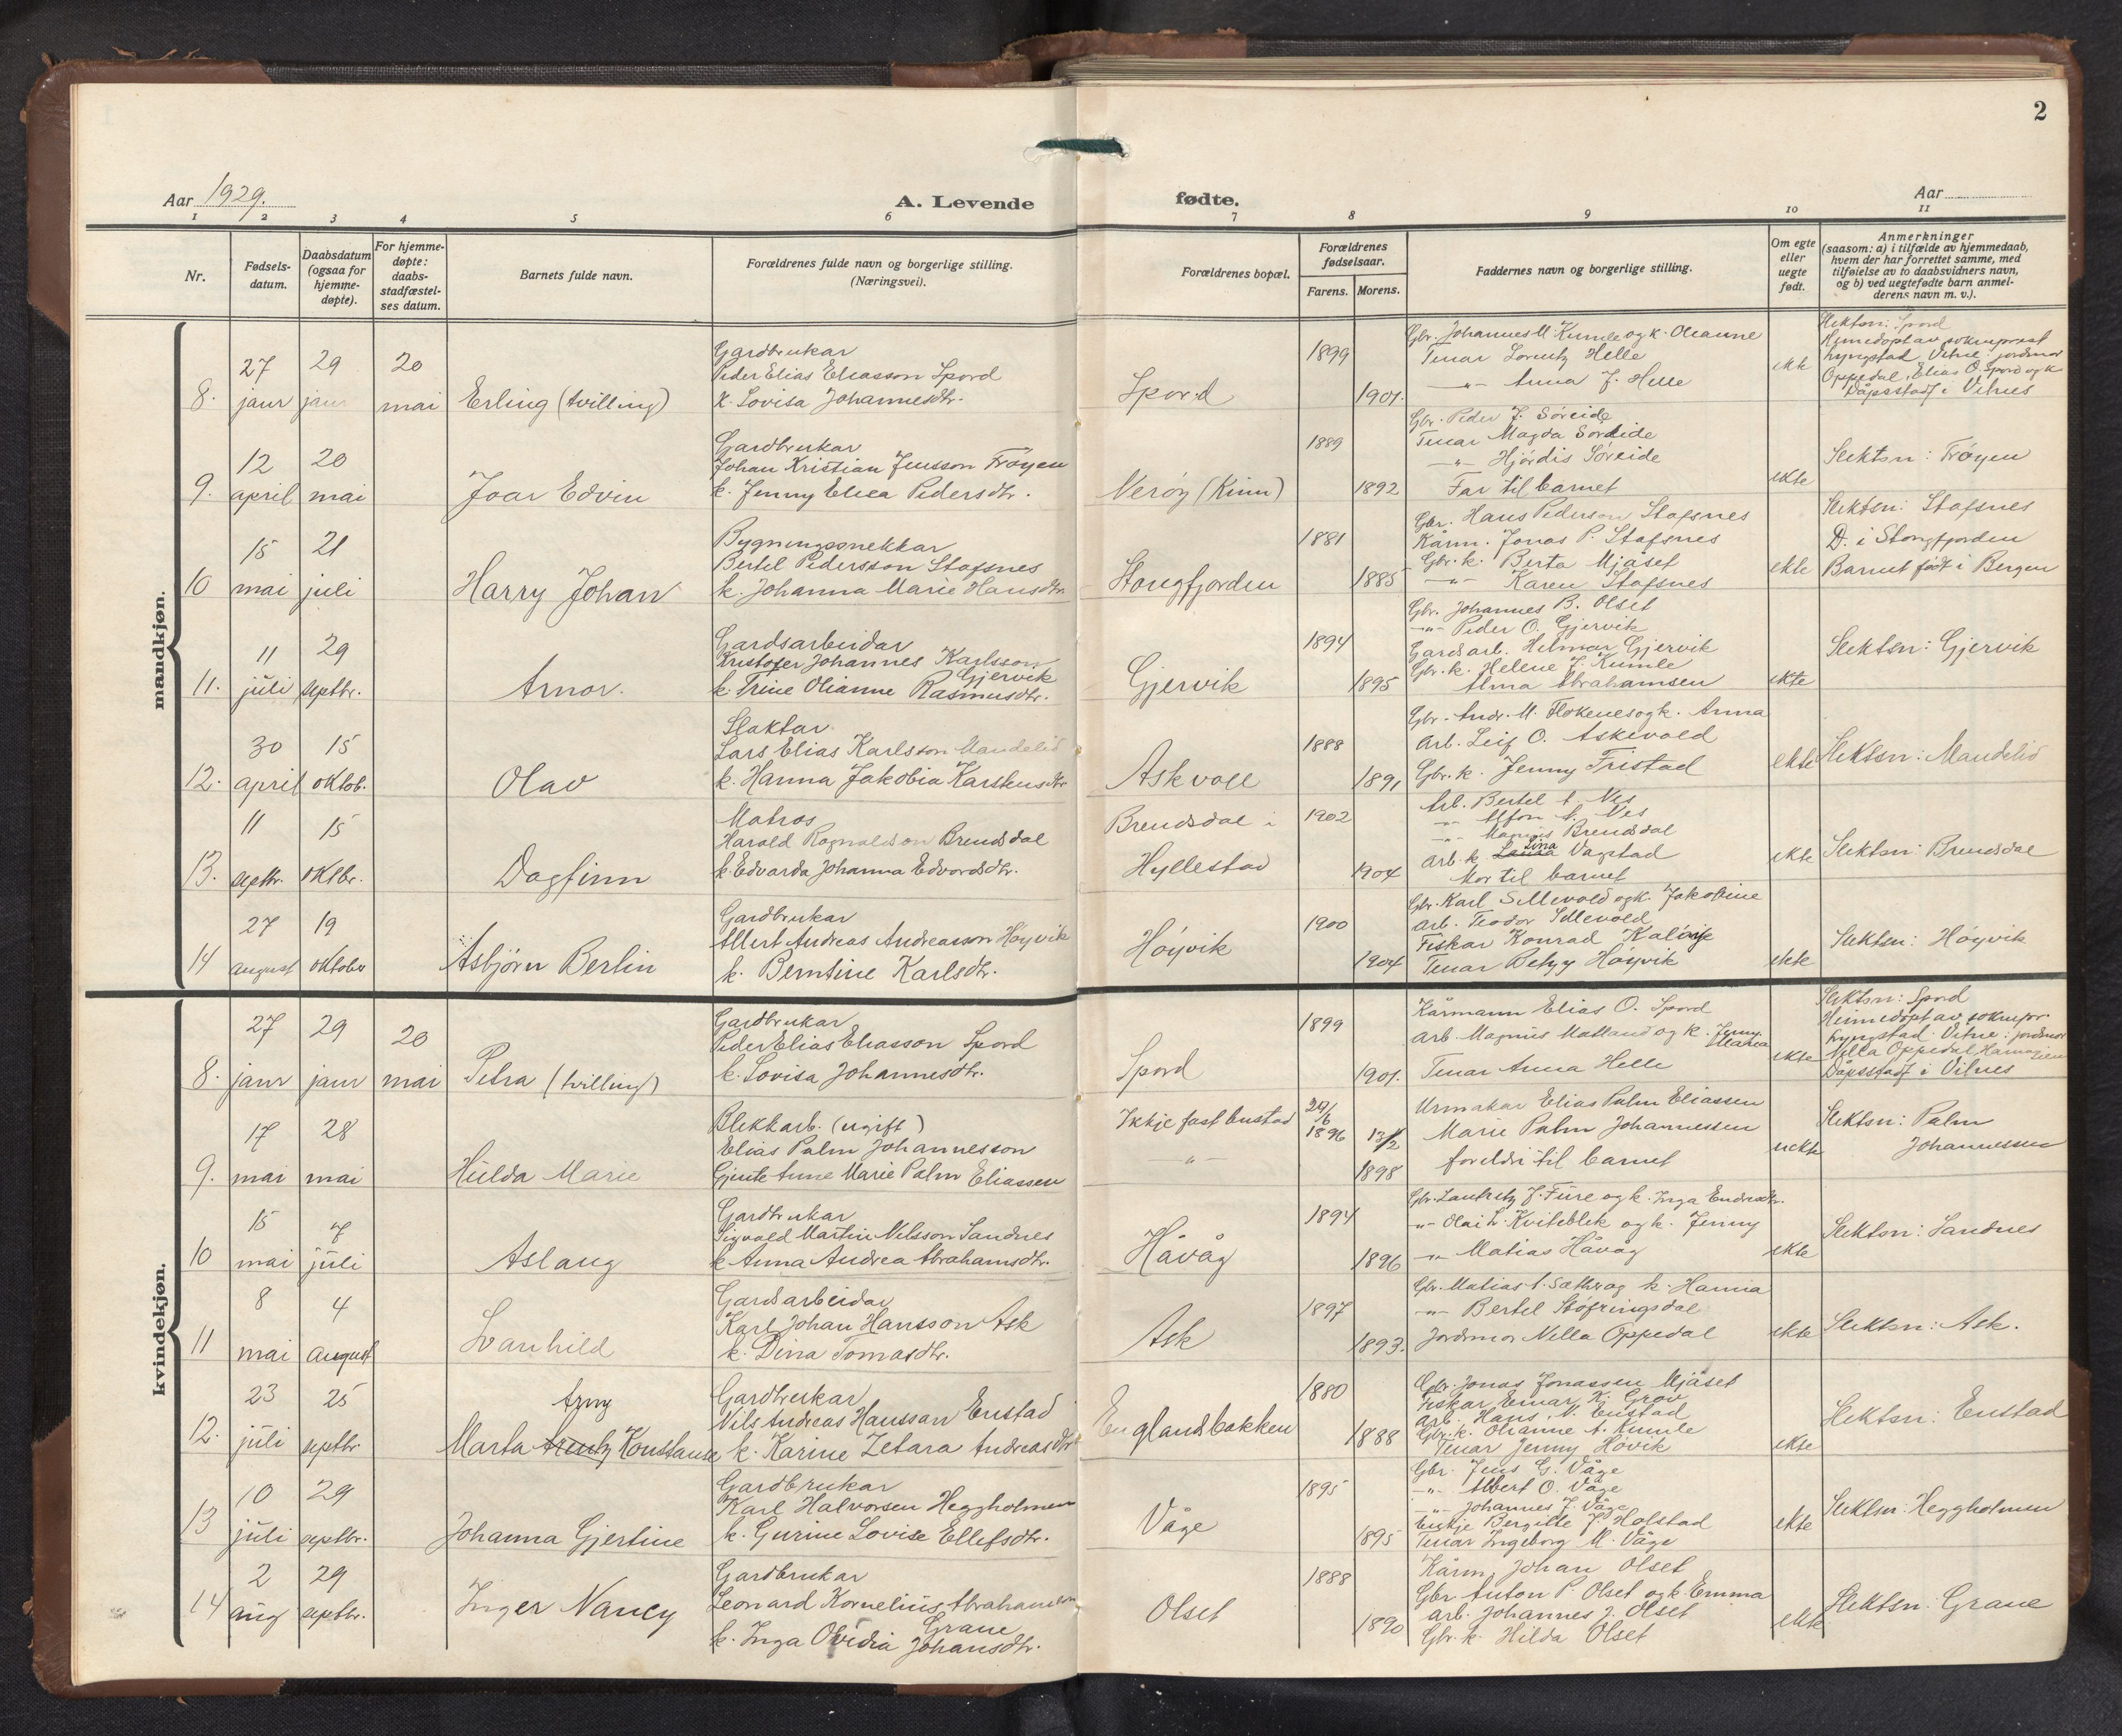 2
Aar 1929.
A. Levende fødte.
Aar
1 2 3 4 5 6 7 8 9 10 11
Nr.
Fødsels-
datum.
Daabsdatum
(ogsaa for
hjemme-
døpte).
For hjemme-
døpte:
daabs-
stadfæstel-
ses datum.
Barnets fulde navn.
Forældrenes fulde navn og borgerlige stilling.
(Næringsvei).
Forældrenes bopæl.
Forældrenes
fødselsaar.
Farens. Morens.
Faddernes navn og borgerlige stilling.
Om egte
eller
uegte
født.
Anmerkninger
(saasom: a) i tilfælde av hjemmedaab,
hvem der har forrettet samme, med
tilføielse av to daabsvidners navn,
og b) ved uegtefødte barn anmel-
derens navn m. v.).
mandkjøn.
8.
27
janr
29
janr
20
mai
Erling (tvilling)
Gardbrukar
Peder Elias Eliasson Spord
k. Lovisa Johannesdtr.
Spord
1899
1901.
Gbr. Johannes M. Kumle og k. Oleanne
Tenar Lorentz Helle
-"- Anna J. Helle
ekte
Slektsn: Spord
Heimedøpt av sokneprest
Lyngstad. Vitne: jordmor
Oppedal, Elias O. Spord og k
Dåpsstadf. i Vilnes
9.
12
april
20
mai
Joar Edvin
Gardbrukar
Johan Kristian Jensson Frøyen
k. Jenny Elica Pedersdtr.
Nerøy (Kinn)
1889
1892
Gbr. Peder J. Søreide
Tenar Magda Søreide
-"- Hjørdis Søreide
Far til barnet
ekte
Slektsn: Frøyen
10
15
mai
21
juli
Harry Johan
Bygningssnekkar
Bertel Pedersson Stafsnes
k. Johanna Marie Hansdtr.
Stongfjorden
1881
1885
Gbr. Hans Pederson Stafsnes
Kårm. Jonas P. Stafsnes
Gbr. k. Berta Mjåset
-"- Karen Stafsnes
ekte
Slektsn: Stafsnes
D. i Stongfjorden
Barnet født i Bergen
11.
11
juli
29
septbr.
Arnor.
Gardsarbeidar
Kristofer Johannes Karlsson
Gjervik
k. Trine Olianne Rasmusdtr.
Gjervik
1894
1895
Gbr. Johannes B. Olset
-"- Peder O. Gjervik
Gardsarb. Helmar Gjervik
Gbr. k. Helene J. Kumle
Alma Abrahamsen
ekte
Slektsn: Gjervik
12.
30
april
15
oktob.
Olav
Slaktar
Lars Elias Karlsson Mandelid
k. Hanna Jakobia Karstensdtr
Askvoll
1888
1891
Gbr. Andr. M. Flokenes og k. Anna
Arb. Leif O. Askevold
Gbr. k. Jenny Fristad
ekte
Slektsn: Mandelid
13.
11
septbr.
15
oktbr.
Dagfinn
Matros
Harald Ragnaldson Brendsdal
k. Edvarda Johanna Edvardsdtr.
Brendsdal i
Hyllestad
1902
1904
Arb. Bertel A. Nes
-"- Alfon A. Nes
-"- Magnus Brendsdal
Lina
Arb. k. Vagstad
Mor til barnet
ekte
Slektsn: Brendsdal
14
27
august
19
oktober
Asbjørn Berlin
Gardbrukar
Albert Andreas Andreasson Høyvik
k. Berntine Karlsdtr.
Høyvik
1900
1904
Gbr. Karl Sellevold og k. Jakobine
Arb. Teodor Sellevold
Fiskar Konrad Kalvik
Tenar Betzy Høyvik
ekte
Slektsn: Høyvik
kvindekjøn.
8.
27
janr
29
janr
20
mai
Petra (tvilling)
Gardbrukar
Peder Elias Eliasson Spord
k. Lovisa Johannesdtr.
Spord
1899
1901.
Kårmann Elias O. Spord
Arb. Magnus Matland og k. Jenny
Tenar Anna Helle
ekte
Slektsn: Spord
Heimedøpt av soknepr.
Lyngstad. Vitne: jordmor
Nella Oppedal,
Dåpsstadf. i Vilnes
9.
17
mai
28
mai
Hulda Marie
Blekkarb. (ugift)
Elias Palm Johannesson
Gjente Anne Marie Palm Eliassen
Ikkje fast bustad
-"-
20/6
1896
13/2
1898
Urmakar Elias Palm Eliassen
Marie Palm Johannessen
foreldri til barnet
uekte
Slektsn: Palm
Johannessen
10
15
mai
7
juli
Aslaug
Gardbrukar
Sigvald Martin Nilsson Sandnes
k. Anna Andrea Abrahamsdtr.
Håvåg
1894
1896
Gbr. Lauritz J. Fure og k. Inga Endresdtr.
-"- Olai L. Kviteblek og k. Jenny
-"- Matias Håvåg
ekte
Slektsn: Sandnes
11
8
mai
4
august
Svanhild
Gardsarbeidar
Karl Johan Hansson Ask
k. Dina Tomasdtr.
Ask
1897
1893.
Gbr. Matias A. Sæther og k. Hanna
-"- Bertel Støfringsdal
Jordmor Nella Oppedal
ekte
Slektsn: Ask.
12.
23
juli
25
septbr
Arny
Marta Konstanse
Gardbrukar
Nils Andreas Hansson Enstad
k. Karine Zetara Andreasdtr
Englandsbakken
1880
1888
Gbr. Jonas Jonassen Mjåset
Fiskar Einar K. Grov
Arb. Hans N. Enstad
Gbr. k. Olianne A. Kumle
Tenar Jenny Høvik
ekte
Slektsn: Enstad
13
10
juli
29
septbr.
Johanna Gjertine
Gardbrukar
Karl Halvorsen Heggholmen
k. Gurine Lovise Ellefsdtr.
Våge
1895
1895
Gbr. Jens G. Våge
-"- Albert O. Våge
-"- Johannes J. Våge
Enkje Bergitte J. Hofstad
Tenar Ingeborg M. Våge
ekte
Slektsn: Heggholmen
14
2
aug
29
septbr.
Inger Nancy
Gardbrukar
Leonard Kornelius Abrahamson
Grane
k. Inga Ovidia Johansdtr.
Olset
1888
1890
Kårm. Johan Olset
Gbr. Anton P. Olset og k. Emma
Arb. Johannes J. Olset
Gbr. k. Hilda Olset
ekte
Slektsn: Grane